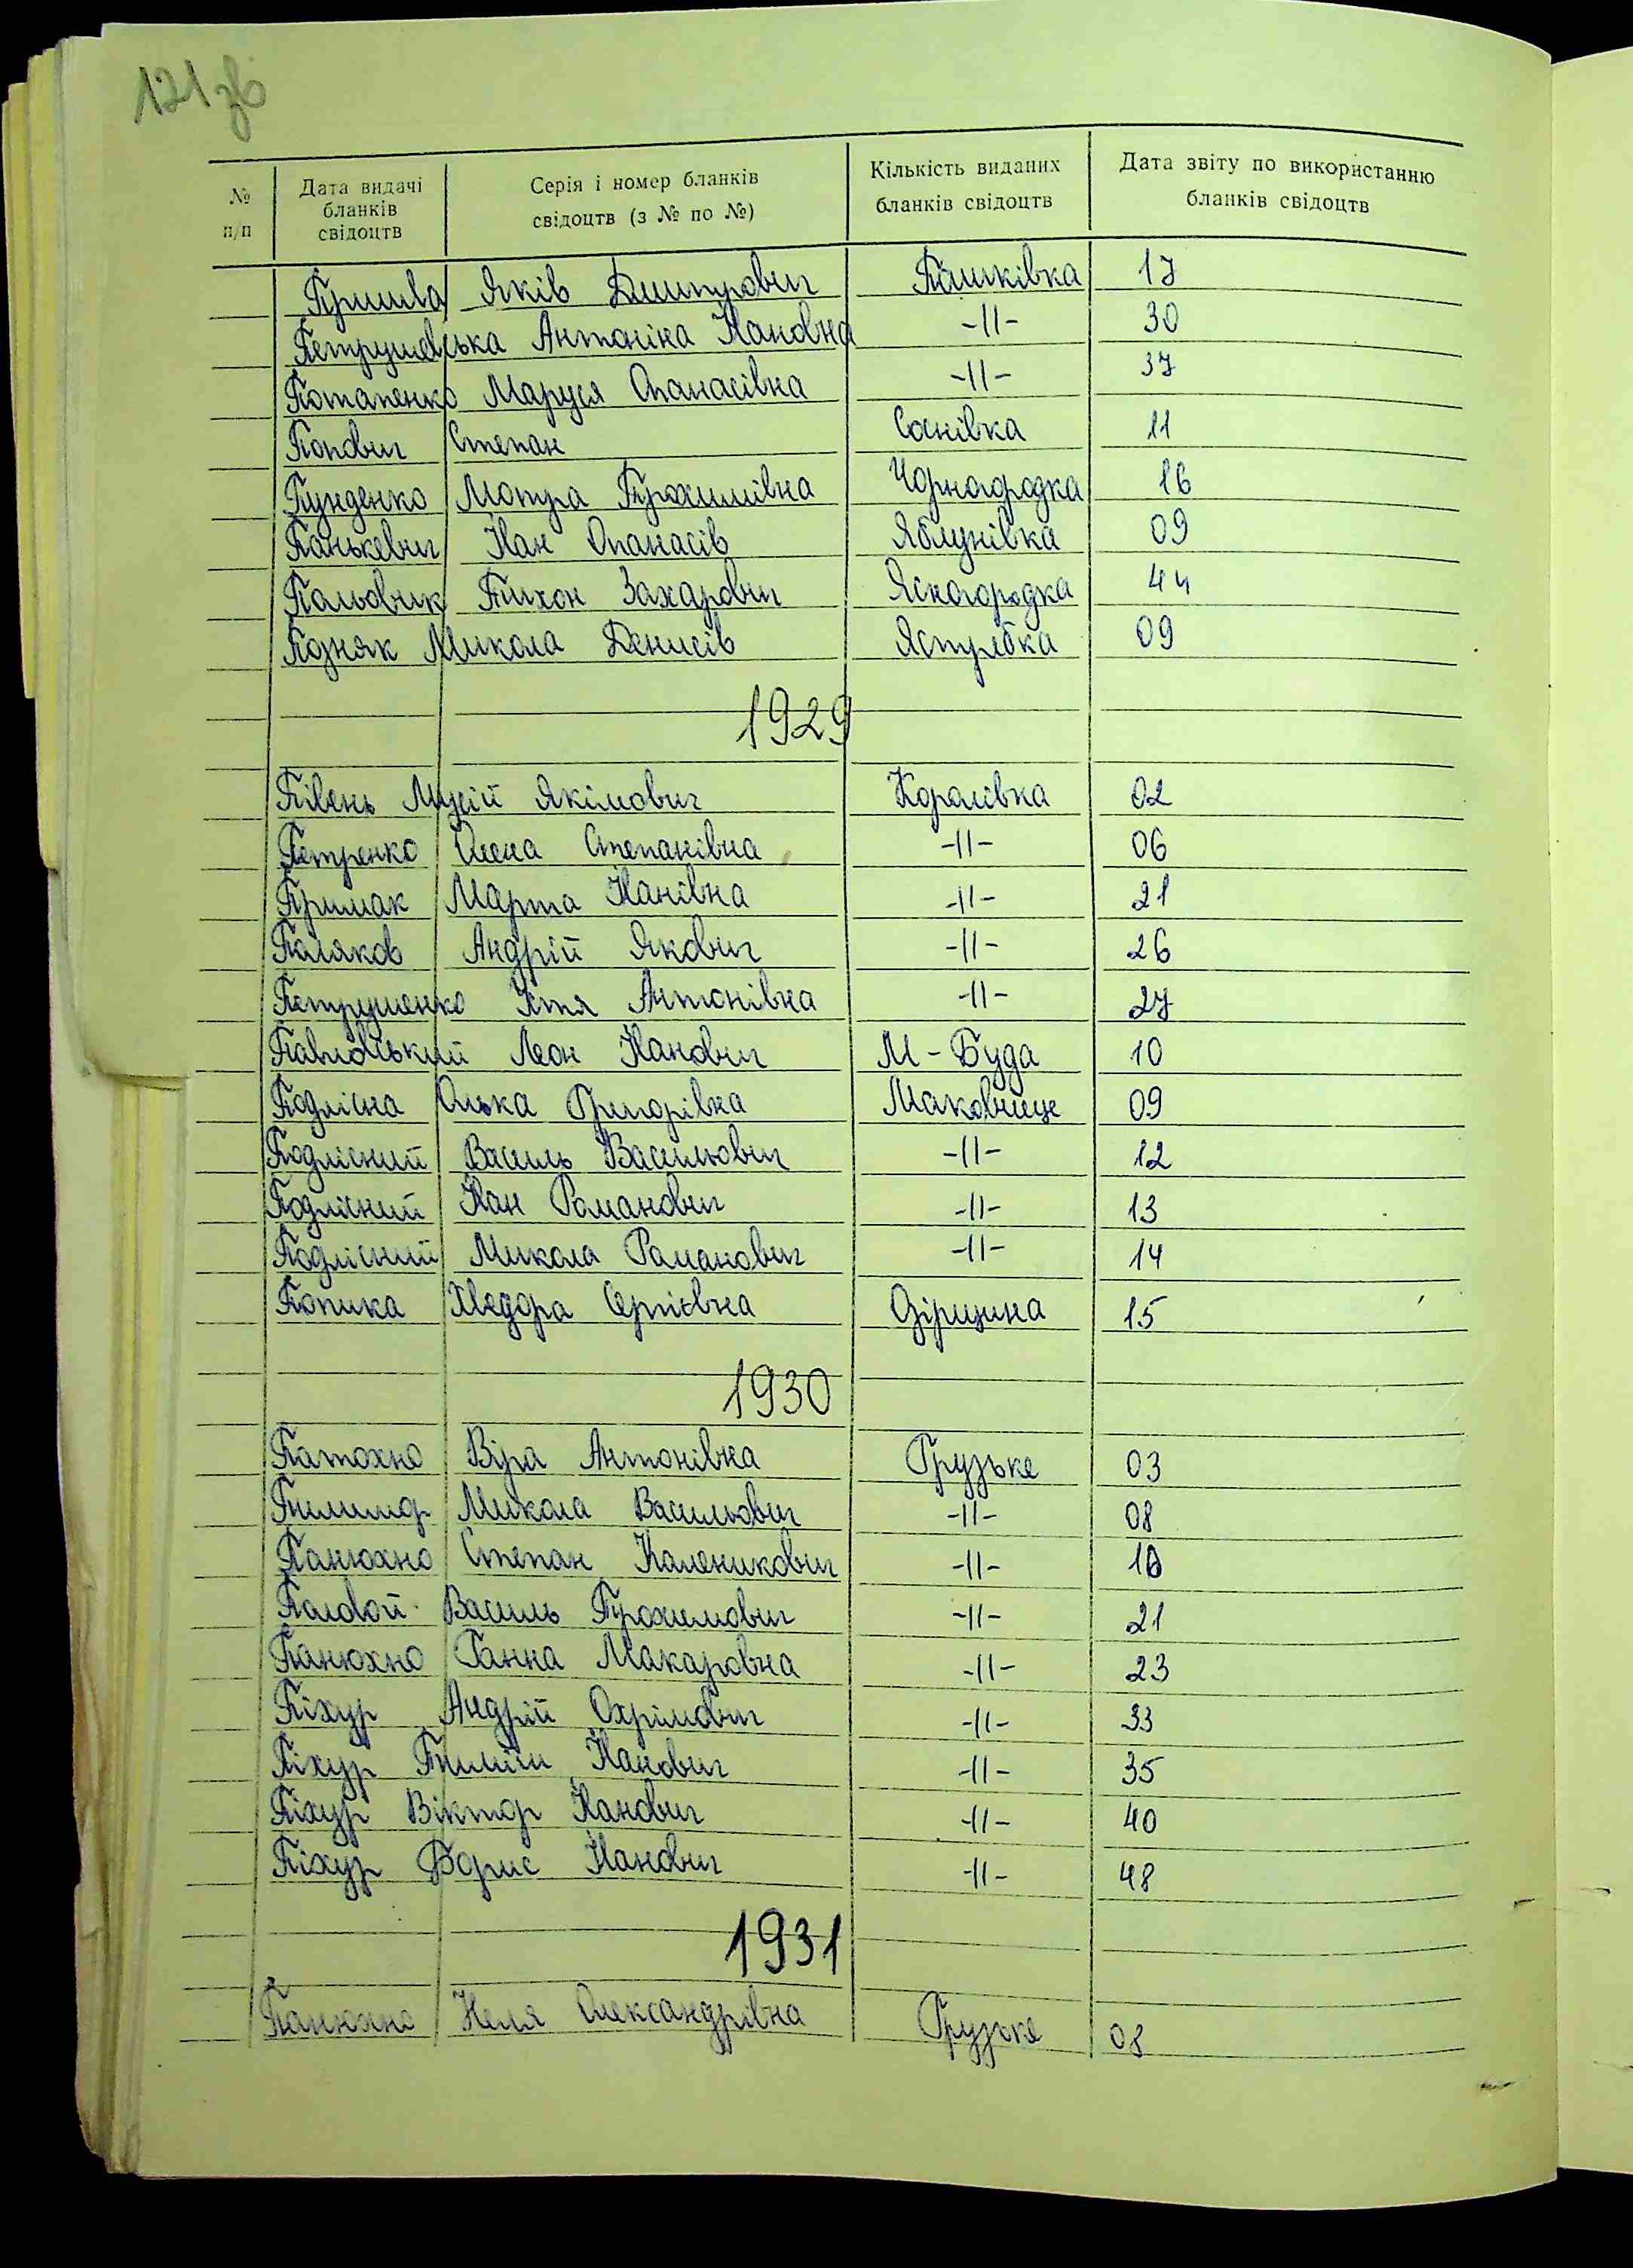 121 зв
№ п/п
Дата видачі бланків свідоцтв
Серія і номер бланків свідоцтв (з № по №)
Кількість виданих бланків свідоцтв
Дата звіту по використанню бланків свідоцтв
Яків Дмитрович 17
Петрушевська Антоніна Йановна -||- 30
Потапенко Маруся Опанасівна -||- 37
Попович Степан Соснівка 11
Пунденко Мотра Прохимівна Чорногородка 16
Панькевич Йан Опанасів Яблунівка 09
Пальовник Тихон Захарович Ясногородка 44
Позняк Микола Денисів Яструбка 09
1929
Півень Мусій Якімович Королівка 02
Петренко Олена Степанівна -||- 06
Примак Марта Йанівна -||- 21
Поляков Андрій Якович -||- 26
Петрушенко Устя Антонівна -||- 27
Павловський Леон Йанович М-Буда 10
Подлісна Олька Григорівна Маковище 09
Подлісний Василь Васильович -||- 12
Подлісний Йан Романович -||- 13
Подлісний Микола Романович -||- 14
Попика Хведора Сергієвна Озірщина 15
1930
Патохно Віра Антонівна Грузьке 03
Микола Васильович -||- 08
Панюхно Степан Каленикович -||- 10
Палвой Василь Прохимович -||- 21
Панюхно Ганна Макаровна -||- 23
Піхур Андрій Охрімович -||- 33
Піхур Пилип Йанович -||- 35
Піхур Віктор Йанович -||- 40
Піхур Борис Йанович -||- 48
1931
Панюхно Неля Олександрівна Грузьке 08